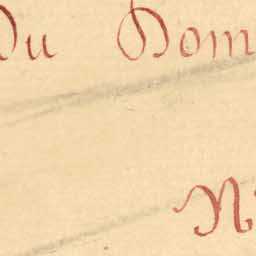 Du Dom
N